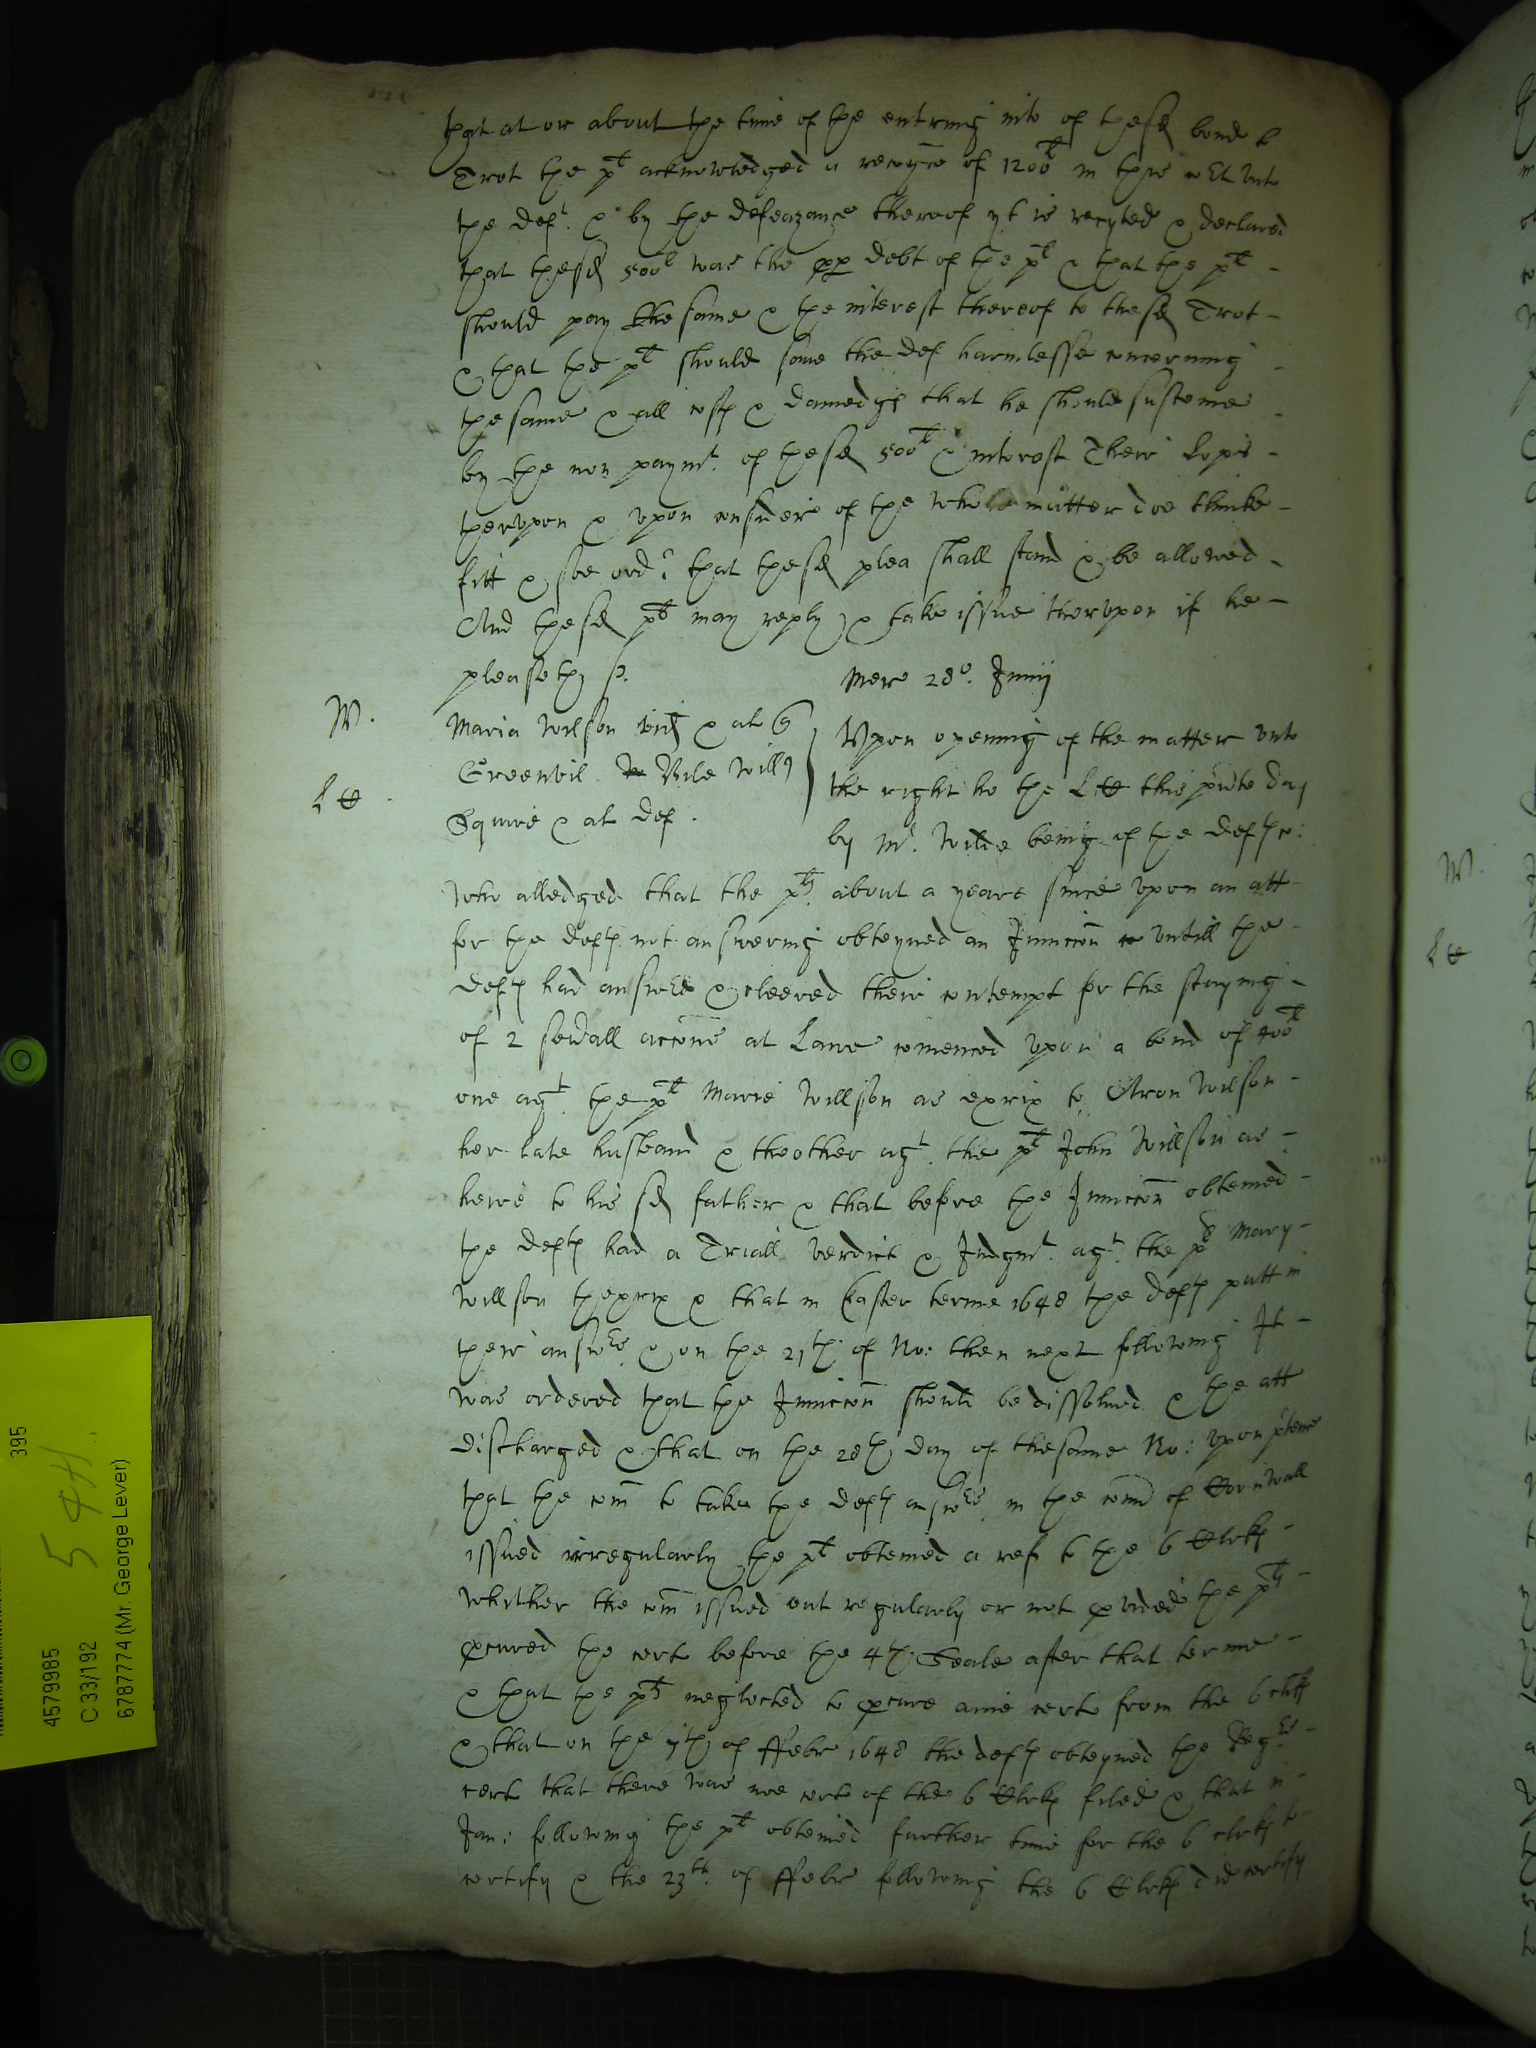 that at or about the time of the entring into of the sd bond to
Trot the plt acknowledged a recogce of 1200l in this Cort unto
the deft & by the defeazance thereof yt is recyted & declared
that the sd 500l was the pp debt of the plt & that the plt -
should pay the same & the interest thereof to the sd Trot -
& that the plt should save the def harmlesse concerning -
the same & all costs & damedges that he should susteine -
by the non paymt. of the sd 500l & interest Their Lopps -
therupon & upon consideir of the whole matter doe thinke -
fitt & soe ordr that the sd plea shall stand & be allowed -
And the sd plt may reply & take issue therupon if he -
pleaseth p.
Merc 28o. Junij
W.
Maria Wilson vid & al Q
Greenvil Vile Willm
Squire & al def.
L CC
Upon opening of the matter unto
the right ho the L CC this pnte day
by Mr. Wilde being of the defts co:
who alledged that the plts about a yeare since upon an att
for the defts not answering obteyned an Junccon untill the -
defts had answred & cleered their contempt for the staying -
of 2 sevrall accons at Lawe comenced upon a bond of 400l
one agt. the plt Marie Willson as exrix to Aron Wilson -
her late husband & the other agt. the plt John Willson as -
heire to his sd father & that before the Junccon obteined -
the defts had a Triall verdict & Judgmt. agt. the pl Mary -
Willson thexrix & that in Easter terme 1648 the defts putt in
their answrs & on the 21th of No: then next following It -
was ordered that the Junccon should be dissolved & the att
discharged & that on the 28th day of the same No: upon ptence
that the com to take the defts answrs in the com of Cornwall
issued irregularly the plt obteined a ref to the 6 Clrks -
whither the com issued out regularly or not provided the plts -
pcured the cert before the 4th Seale after that terme -
& that the plts neglected to pcure anie cert from the 6 clks
& that on the 7th of ffebr 1648 the defts obteyned the Regrs -
cert that there was noe cert of the 6 Clrks filed & that in -
Jan: following the plt obteined further time for the 6 clrks to -
certify & the 23th. of ffebr following the 6 Clrks did certify
W.
L CC
395
5 4H
4579985
C 33/192
6787774 (Mr. George Lever)